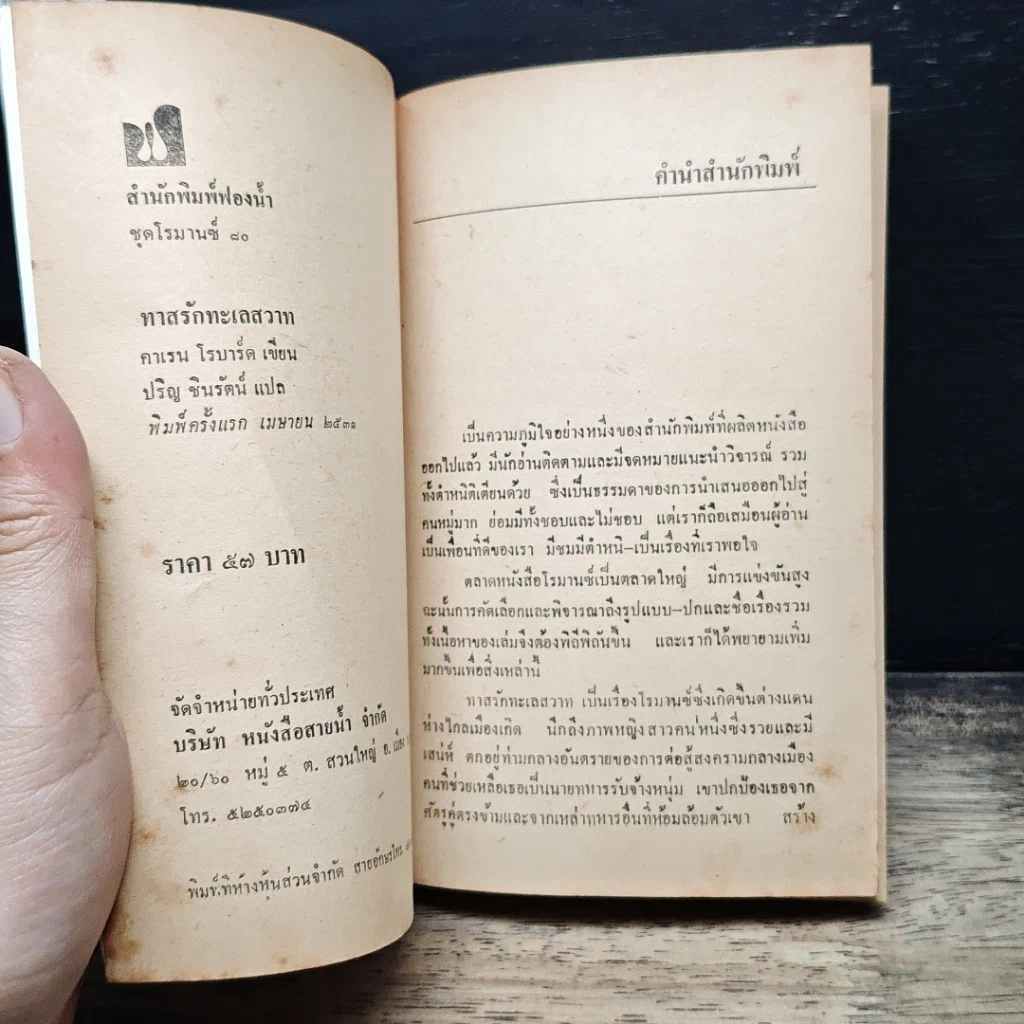 สำนักพิมพ์ฟองน้ำ
ชุดโรมานซ์ ๘๐
ทาสรักทะเลสวาท
คาเรน โรบาร์ด เขียน
ปริญ ชินรัตน์ แปล
พิมพ์ครั้งแรก เมษายน ๒๕๓๑
ราคา ๕๗ บาท
จัดจำหน่ายทั่วประเทศ
บริษัท หนังสือสายน้ำ จำกัด
๒๐/๖๐ หมู่ ๕ ต. สวนใหญ่ อ. เมือง
โทร. ๕๒๕๐๓๗๔
พิมพ์ที่ห้างหุ้นส่วนจำกัด สายอักษร โทร.
คำนำสำนักพิมพ์
เป็นความภูมิใจอย่างหนึ่งของสำนักพิมพ์ที่ผลิตหนังสือ
ออกไปแล้ว มีนักอ่านติดตามและมีจดหมายแนะนำวิจารณ์ รวม
ทั้งตำหนิติเตียนด้วย ซึ่งเป็นธรรมดาของการนำเสนอออกไปสู่
คนหมู่มาก ย่อมมีทั้งชอบและไม่ชอบ แต่เราก็ถือเสมือนผู้อ่าน
เป็นเพื่อนที่ดีของเรา มีชมมีตำหนิ–เป็นเรื่องที่เราพอใจ
ตลาดหนังสือโรมานซ์เป็นตลาดใหญ่ มีการแข่งขันสูง
ฉะนั้นการคัดเลือกและพิจารณาถึงรูปแบบ–ปกและชื่อเรื่องรวม
ทั้งเนื้อหาของเล่มจึงต้องพิถีพิถันขึ้น และเราก็ได้พยายามเพิ่ม
มากขึ้นเพื่อสิ่งเหล่านี้
ทาสรักทะเลสวาท เป็นเรื่องโรมานซ์ซึ่งเกิดขึ้นต่างแดน
ห่างไกลเมืองเกิด นึกถึงภาพหญิงสาวคนหนึ่งซึ่งรวยและมี
เสน่ห์ ตกอยู่ท่ามกลางอันตรายของการต่อสู้สงครามกลางเมือง
คนที่ช่วยเหลือเธอเป็นนายทหารรับจ้างหนุ่ม เขาปกป้องเธอจาก
ศัตรูคู่ตรงข้ามและจากเหล่าทหารอื่นที่ห้อมล้อมตัวเขา สร้าง